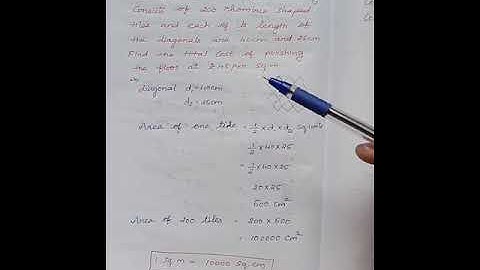 Consist of 200 rhombus shaped
tiles and each of its length of
the diagonals are 40cm and 25cm
Find the total cost of polishing
the floor at ₹ 45 per sq.m
Diagonal d₁ = 40cm
d₂ = 25cm
Area of one tile = 1/2 x d₁ x d₂ sq.units
1/2 x 40 x 25
= 1/2 x 40 x 25
20 x 25
500 cm²
Area of 200 tiles = 200 x 500
= 100000 cm²
1 sq.m = 10000 sq.cm